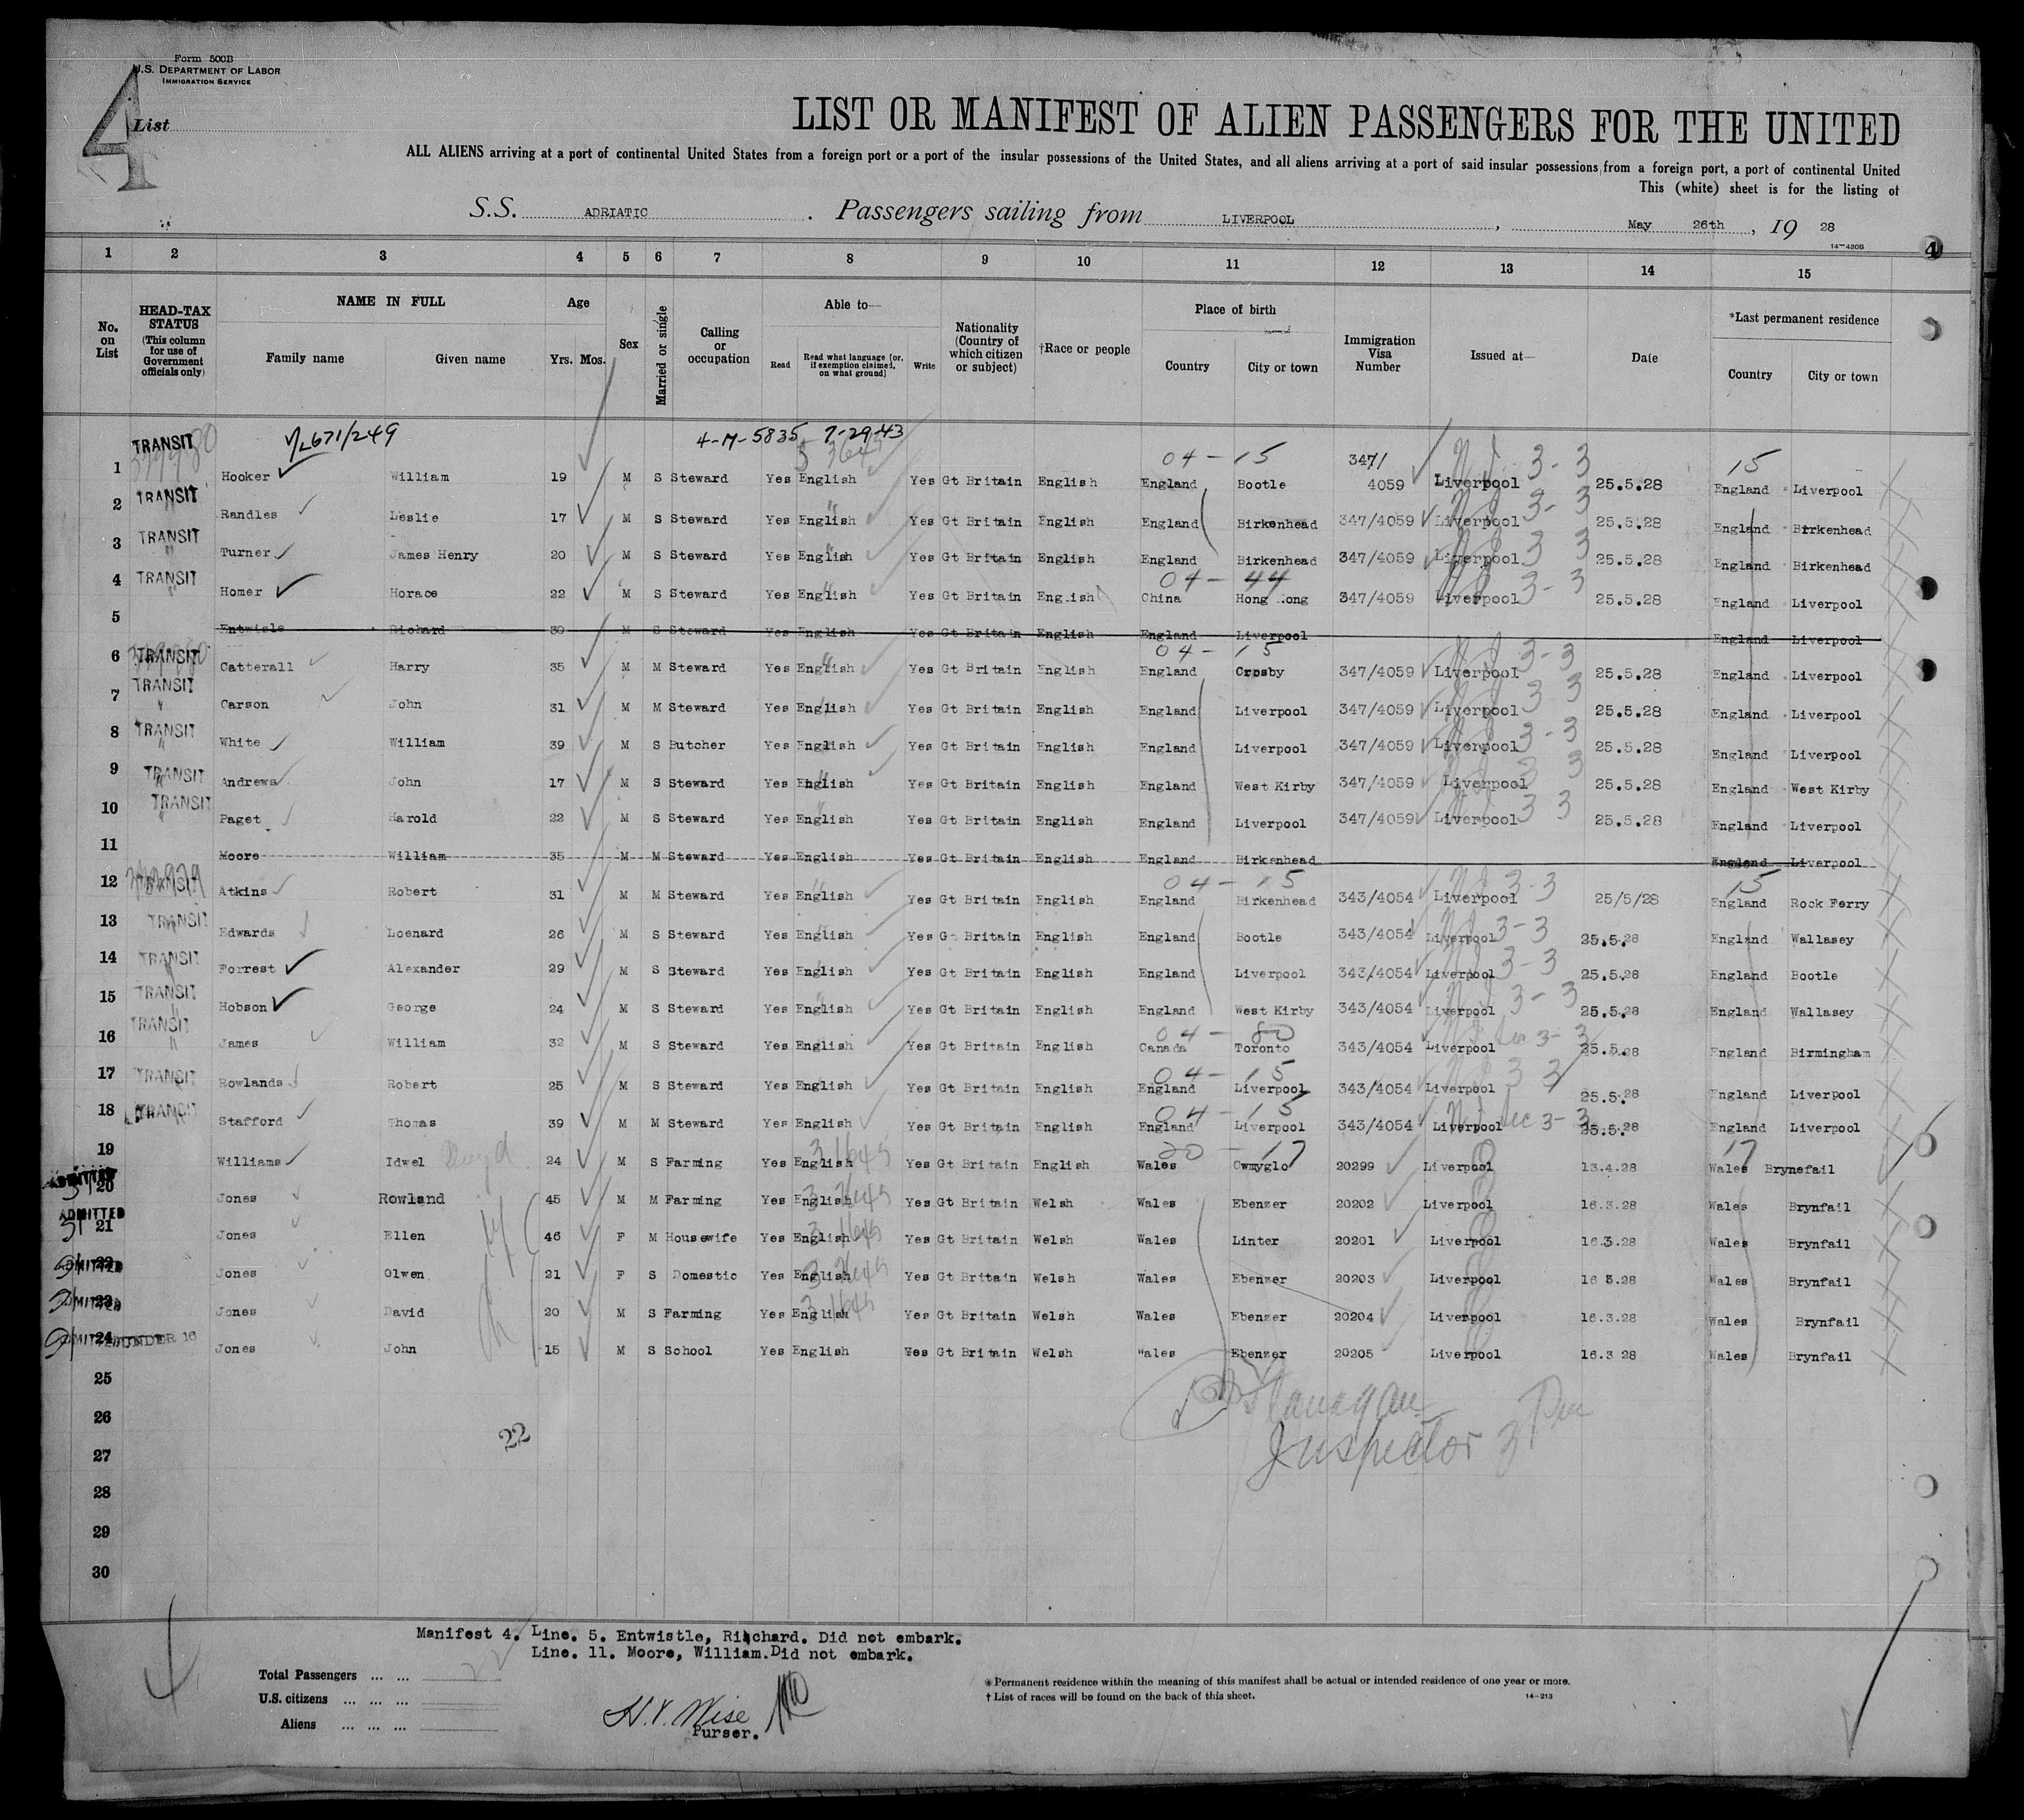 Form 500B
U.S. DEPARTMENT OF LABOR
IMMIGRATION SERVICE
4
List
LIST OR MANIFEST OF ALIEN PASSENGERS FOR THE UNITED
ALL ALIENS arriving at a port of continental United States from a foreign port or a port of the insular possessions of the United States, and all aliens arriving at a port of said insular possessions from a foreign port, a port of continental United
This (white) sheet is for the listing of
S.S. ADRIATIC . Passengers sailing from LIVERPOOL , May 26th , 19 28
14-480B
4
1 2 3 4 5 6 7 8 9 10 11 12 13 14 15
No. on List
HEAD-TAX STATUS (This column for use of Government officials only)
NAME IN FULL
Family name Given name
Age
Yrs. Mos.
Sex
Married or single
Calling or occupation
Able to—
Read
Read what language [or, if exemption claimed, on what ground]
Write
Nationality (Country of which citizen or subject)
†Race or people
Place of birth
Country City or town
Immigration Visa Number
Issued at—
Date
*Last permanent residence
Country City or town
TRANSIT 4-M-5835 7-29-43
04 - 15 347/ 3-3 15
1 Hooker William 19 M S Steward Yes English Yes Gt Britain English England Bootle 4059 Liverpool 25.5.28 England Liverpool
2 TRANSIT Randles Leslie 17 M S Steward Yes English Yes Gt Britain English England Birkenhead 347/4059 Liverpool 25.5.28 England Birkenhead
3 TRANSIT Turner James Henry 20 M S Steward Yes English Yes Gt Britain English England Birkenhead 347/4059 Liverpool 25.5.28 England Birkenhead
04 - 44
4 TRANSIT Homer Horace 22 M S Steward Yes English Yes Gt Britain English China Hong ong 347/4059 Liverpool 25.5.28 England Liverpool
5 Entwisle Richard 30 M S Steward Yes English Yes Gt Britain English England Liverpool England Liverpool
04 - 15
6 TRANSIT Catterall Harry 35 M M Steward Yes English Yes Gt Britain English England Crosby 347/4059 Liverpool 25.5.28 England Liverpool
7 TRANSIT Carson John 31 M M Steward Yes English Yes Gt Britain English England Liverpool 347/4059 Liverpool 25.5.28 England Liverpool
8 TRANSIT White William 39 M S Butcher Yes English Yes Gt Britain English England Liverpool 347/4059 Liverpool 25.5.28 England Liverpool
9 TRANSIT Andrews John 17 M S Steward Yes English Yes Gt Britain English England West Kirby 347/4059 Liverpool 25.5.28 England West Kirby
10 TRANSIT Paget Harold 22 M S Steward Yes English Yes Gt Britain English England Liverpool 347/4059 Liverpool 25.5.28 England Liverpool
11 Moore William 35 M M Steward Yes English Yes Gt Britain English England Birkenhead England Liverpool
04 - 15 3-3 15
12 TRANSIT Atkins Robert 31 M M Steward Yes English Yes Gt Britain English England Birkenhead 343/4054 Liverpool 25/5/28 England Rock Ferry
13 TRANSIT Edwards Loenard 26 M S Steward Yes English Yes Gt Britain English England Bootle 343/4054 Liverpool 25.5.28 England Wallasey
14 TRANSIT Forrest Alexander 29 M S Steward Yes English Yes Gt Britain English England Liverpool 343/4054 Liverpool 25.5.28 England Bootle
15 TRANSIT Hobson George 24 M S Steward Yes English Yes Gt Britain English England West Kirby 343/4054 Liverpool 25.5.28 England Wallasey
04 - 80
16 TRANSIT James William 32 M S Steward Yes English Yes Gt Britain English Canada Toronto 343/4054 Liverpool 25.5.28 England Birmingham
04 - 15
17 TRANSIT Rowlands Robert 25 M S Steward Yes English Yes Gt Britain English England Liverpool 343/4054 Liverpool 25.5.28 England Liverpool
04 - 15
18 TRANSIT Stafford Thomas 39 M M Steward Yes English Yes Gt Britain English England Liverpool 343/4054 Liverpool 25.5.28 England Liverpool
20 - 17 17
19 ADMITTED Williams Idwel 24 M S Farming Yes English Yes Gt Britain English Wales Cwmyglo 20299 Liverpool 13.4.28 Wales Brynefail
20 ADMITTED Jones Rowland 45 M M Farming Yes English Yes Gt Britain Welsh Wales Ebenzer 20202 Liverpool 16.3.28 Wales Brynfail
21 Jones Ellen 46 F M Housewife Yes English Yes Gt Britain Welsh Wales Linter 20201 Liverpool 16.3.28 Wales Brynfail
22 ADMITTED Jones Olwen 21 F S Domestic Yes English Yes Gt Britain Welsh Wales Ebenzer 20203 Liverpool 16 3.28 Wales Brynfail
23 ADMITTED Jones David 20 M S Farming Yes English Yes Gt Britain Welsh Wales Ebenzer 20204 Liverpool 16.3.28 Wales Brynfail
24 ADMITTED UNDER 16 Jones John 15 M S School Yes English Wes Gt Britain Welsh "ales Ebenzer 20205 Liverpool 16.3 28 Wales Brynfail
25
26
27
28
29
30
22
Flanagan
Inspector
Manifest 4. Line. 5. Entwistle, Richard. Did not embark.
Line. 11. Moore, William. Did not embark.
Total Passengers ... ... 22
U.S. citizens ... ... ...
Aliens ... ... ...
H.V. Wise
Purser.
* Permanent residence within the meaning of this manifest shall be actual or intended residence of one year or more.
† List of races will be found on the back of this sheet.
14-213